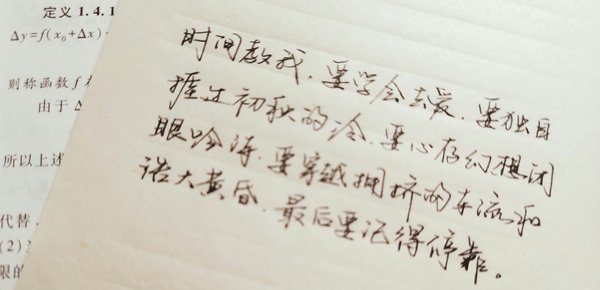 定义 1.4.1
Δy=f(x₀+Δx)
则称函数 f
由于 Δ
所以上述
代替,
(2)
限的
时间教我.要学会去爱.要独自
捱过初秋的冷.要心存幻想闭
眼吟诗.要穿越拥挤的车流和
浩大黄昏.最后要记得停靠。